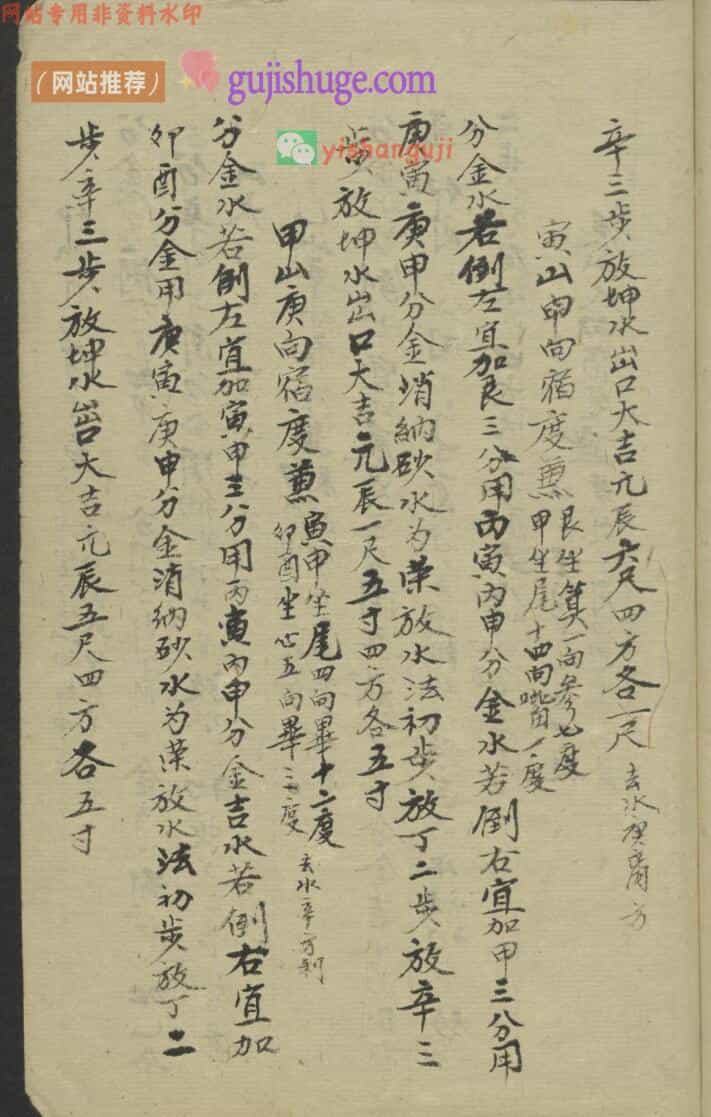 网站专用非资料水印
(网站推荐)
gujishuge.com
yishanguji
辛三步放坤水出口大吉元辰六尺四方各一尺
去水庚方
寅山申向宿度兼
艮坐箕一向参七度
甲坐尾十四向觜一度
分金水若倒左宜加艮三分用丙寅丙申分金水若倒右宜加甲三分用
庚寅庚申分金消納砂水为荣放水法初步放丁二步放辛三
放坤水出口大吉元辰一尺五寸四方各五寸
甲山庚向宿度兼
寅甲坐尾四向畢十二度
卯酉坐心五向畢三度
去水辛方利
分金水若倒左宜加寅申三分用丙寅丙申分金吉水若倒右宜加
卯酉分金用庚寅庚申分金消納砂水为荣放水法初步放丁二
步辛三步放坤水出口大吉元辰五尺四方各五寸